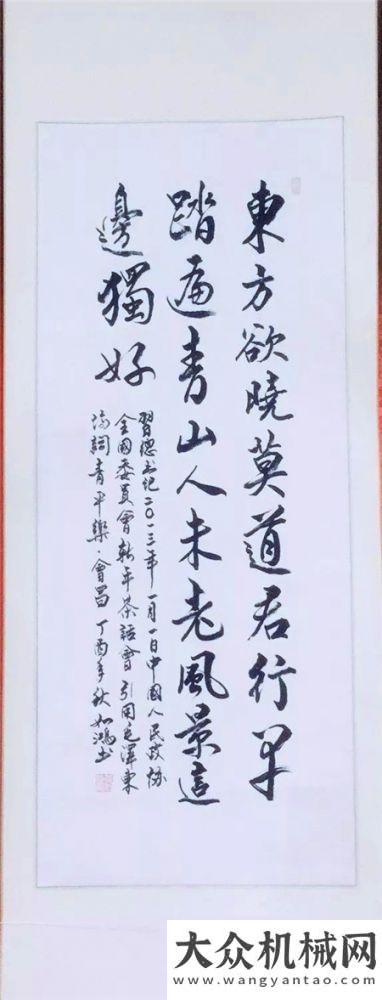 東方欲曉莫道君行早
踏遍青山人未老風景這
邊獨好
習總书记二〇一三年一月一日中國人民政协
全國委員會新年茶話會引用毛澤東
填詞青平樂·會昌 丁酉年秋 如鴻书
大众机械网
www.wangyantao.com